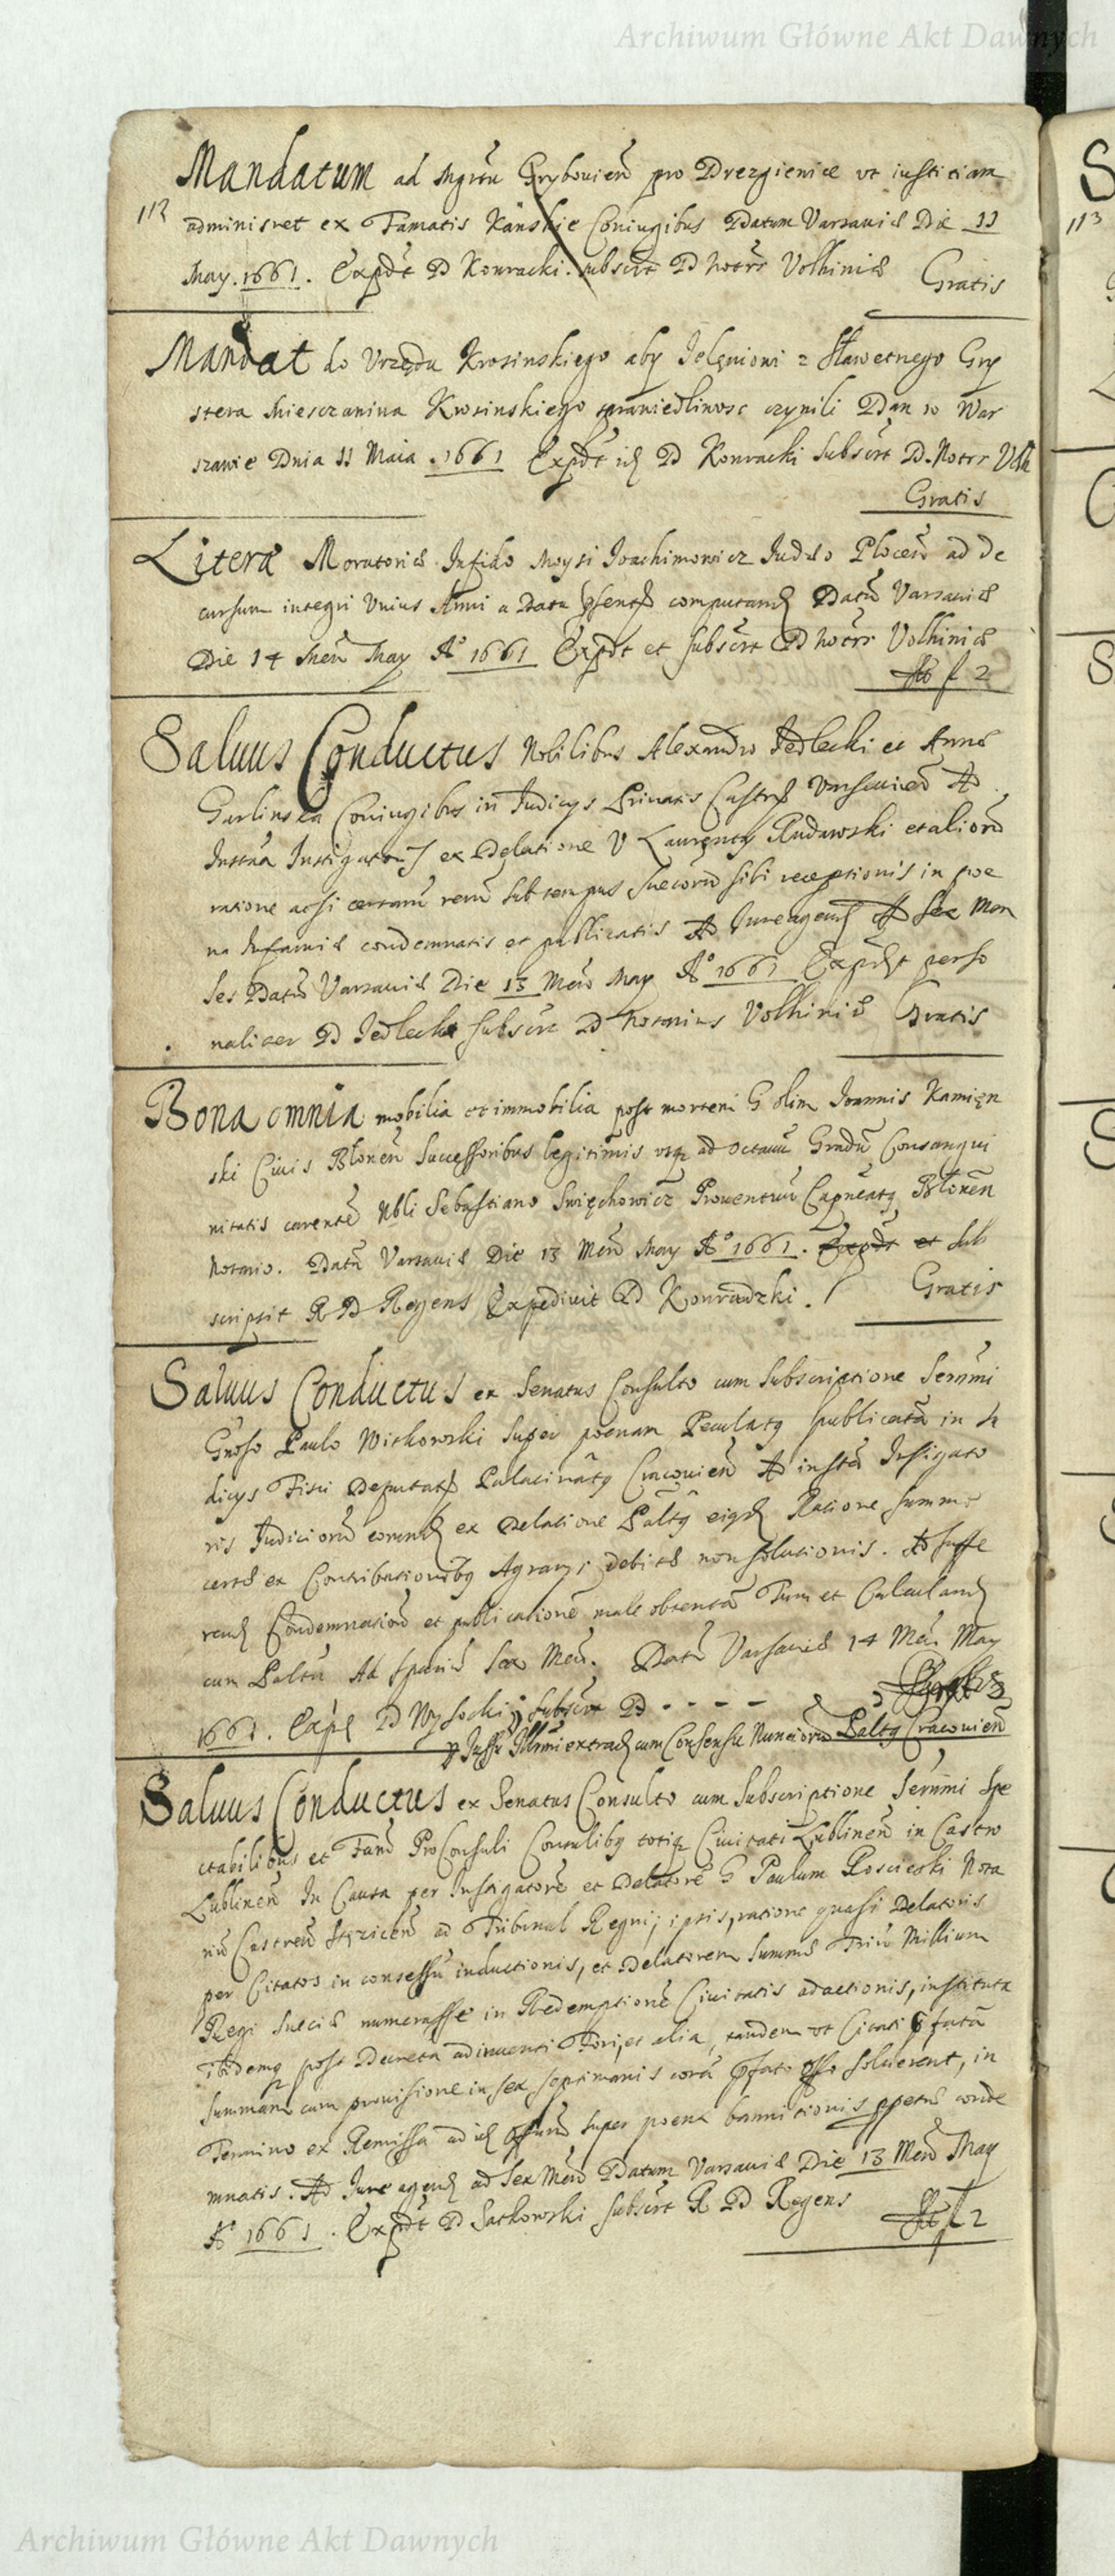 Archiwum Główne Akt Dawnych
Mandatum ad Mgrtu Grybovien pro Drezgienice vt iustitiam
112
administret ex Famatis Kanskie Coniugibus Datum Varsauiæ Die 11
May. 1661. Expdt D Konracki. subscrt D Notrs Volhiniæ Gratis
Mandat do Vrzędu Krosinskiego aby Ielęniowi z Sławetnego Gry
stera Miesczanina Krosinskiego sprawiedlinosc czynili Dan w War
szawie Dnia 11 Maia . 1661 Expdt id D Konracki Subscrt D. Notrr Volh
Gratis
Literæ Moratoriæ Infido Moysi Ioachimowicz Iudæo Plocen ad de
cursum integri Vnius Anni a Data psent computand Datu Varsauiæ
Die 14 Men May A° 1661 Expdt et subscrt D Notrr Volhiniæ
f 2
Saluus Conductus Nobilibus Alexandro Iedlecki et Annæ
Garlinska Coniugibus in Iudicys Priuatis Castr Varsauien Ad
Instña Instigator ex Delatione V Laurenty Rudawski et alioru
ratione acsi certaru reru sub tempus Suecoru sibi receptionis in poe
na Infamiæ condemnatis et publicatis Ad Iure agend Ad Sex Men
ses Datu Varsauiæ Die 13 Men May A° 1661 Expdt perso
naliter D Iedlecki subscrt D Notarius Volhiniæ Gratis
Bona omnia mobilia et immobilia post mortem G olim Ioannis Kamięn
ski Ciuis Blonen Successoribus legitimis vsq ad octauu Gradu Consangui
nitatis carente Nbli Sebastiano Swięchowicz Prouentuu Capneaty Blonen
Notario. Datu Varsauiæ Die 13 Men May A° 1661. Expdt et sub
scripsit R D Regens Expediuit D Konradzki. Gratis
Saluus Conductus ex Senatus Consulto cum Subscriptione Sermi
Gnoso Paulo Witkowski super poenam Peculaty publicata in Iu
dicys Fisci Deputat Palatinaty Cracouien Ad insta Instigato
ris Iudicioru eorund ex Delatione Palty eiqd Ratione summæ
certæ ex Contributioniby Agrarys debitæ non solutionis. Ad suffe
rend Condemnatione et publicatione male obtenta Tum et Calculand
cum Paltu Ad spatiu Sex Men. Datu Varsauiæ 14 Men May
1661. Expd D Wysocki; subscrt D - - - -
Iussu Illmi extrad cum Consensu Nuncioru Palty Cracouien
Saluus Conductus ex Senatus Consulto cum Subscriptione Sermi Spe
ctabilibus et Fand ProConsuli Consuliby totiq Ciuitati Lublinen in Castro
Lublinen In Causa per Instigatore et Delatore G Paulum Roscieski Nota
riu Castren Stęzicen ad Tribunal Regni; ipsis, ratione quasi Delatoris
per Citatos in consessu inductionis, et Delatorem summæ Triu Millium
Regi Sueciæ numerasse in Redemptione Ciuitatis adactionis, instituta
ibidemq post Decreta adinuenti Fori, et alia, tandem vt Citati pfata
summam cum prouisione in sex septimanis cora pfato Offo soluerent, in
Termino ex Remissa ad id Offium super poena bannitionis ppetuæ conde
mnatis. Ad Iure agend ad Sex Men Datum Varsauiæ Die 13 Men May
A° 1661. Expdt D Satkowski subscrt R D Regens f 2
113
Archiwum Główne Akt Dawnych